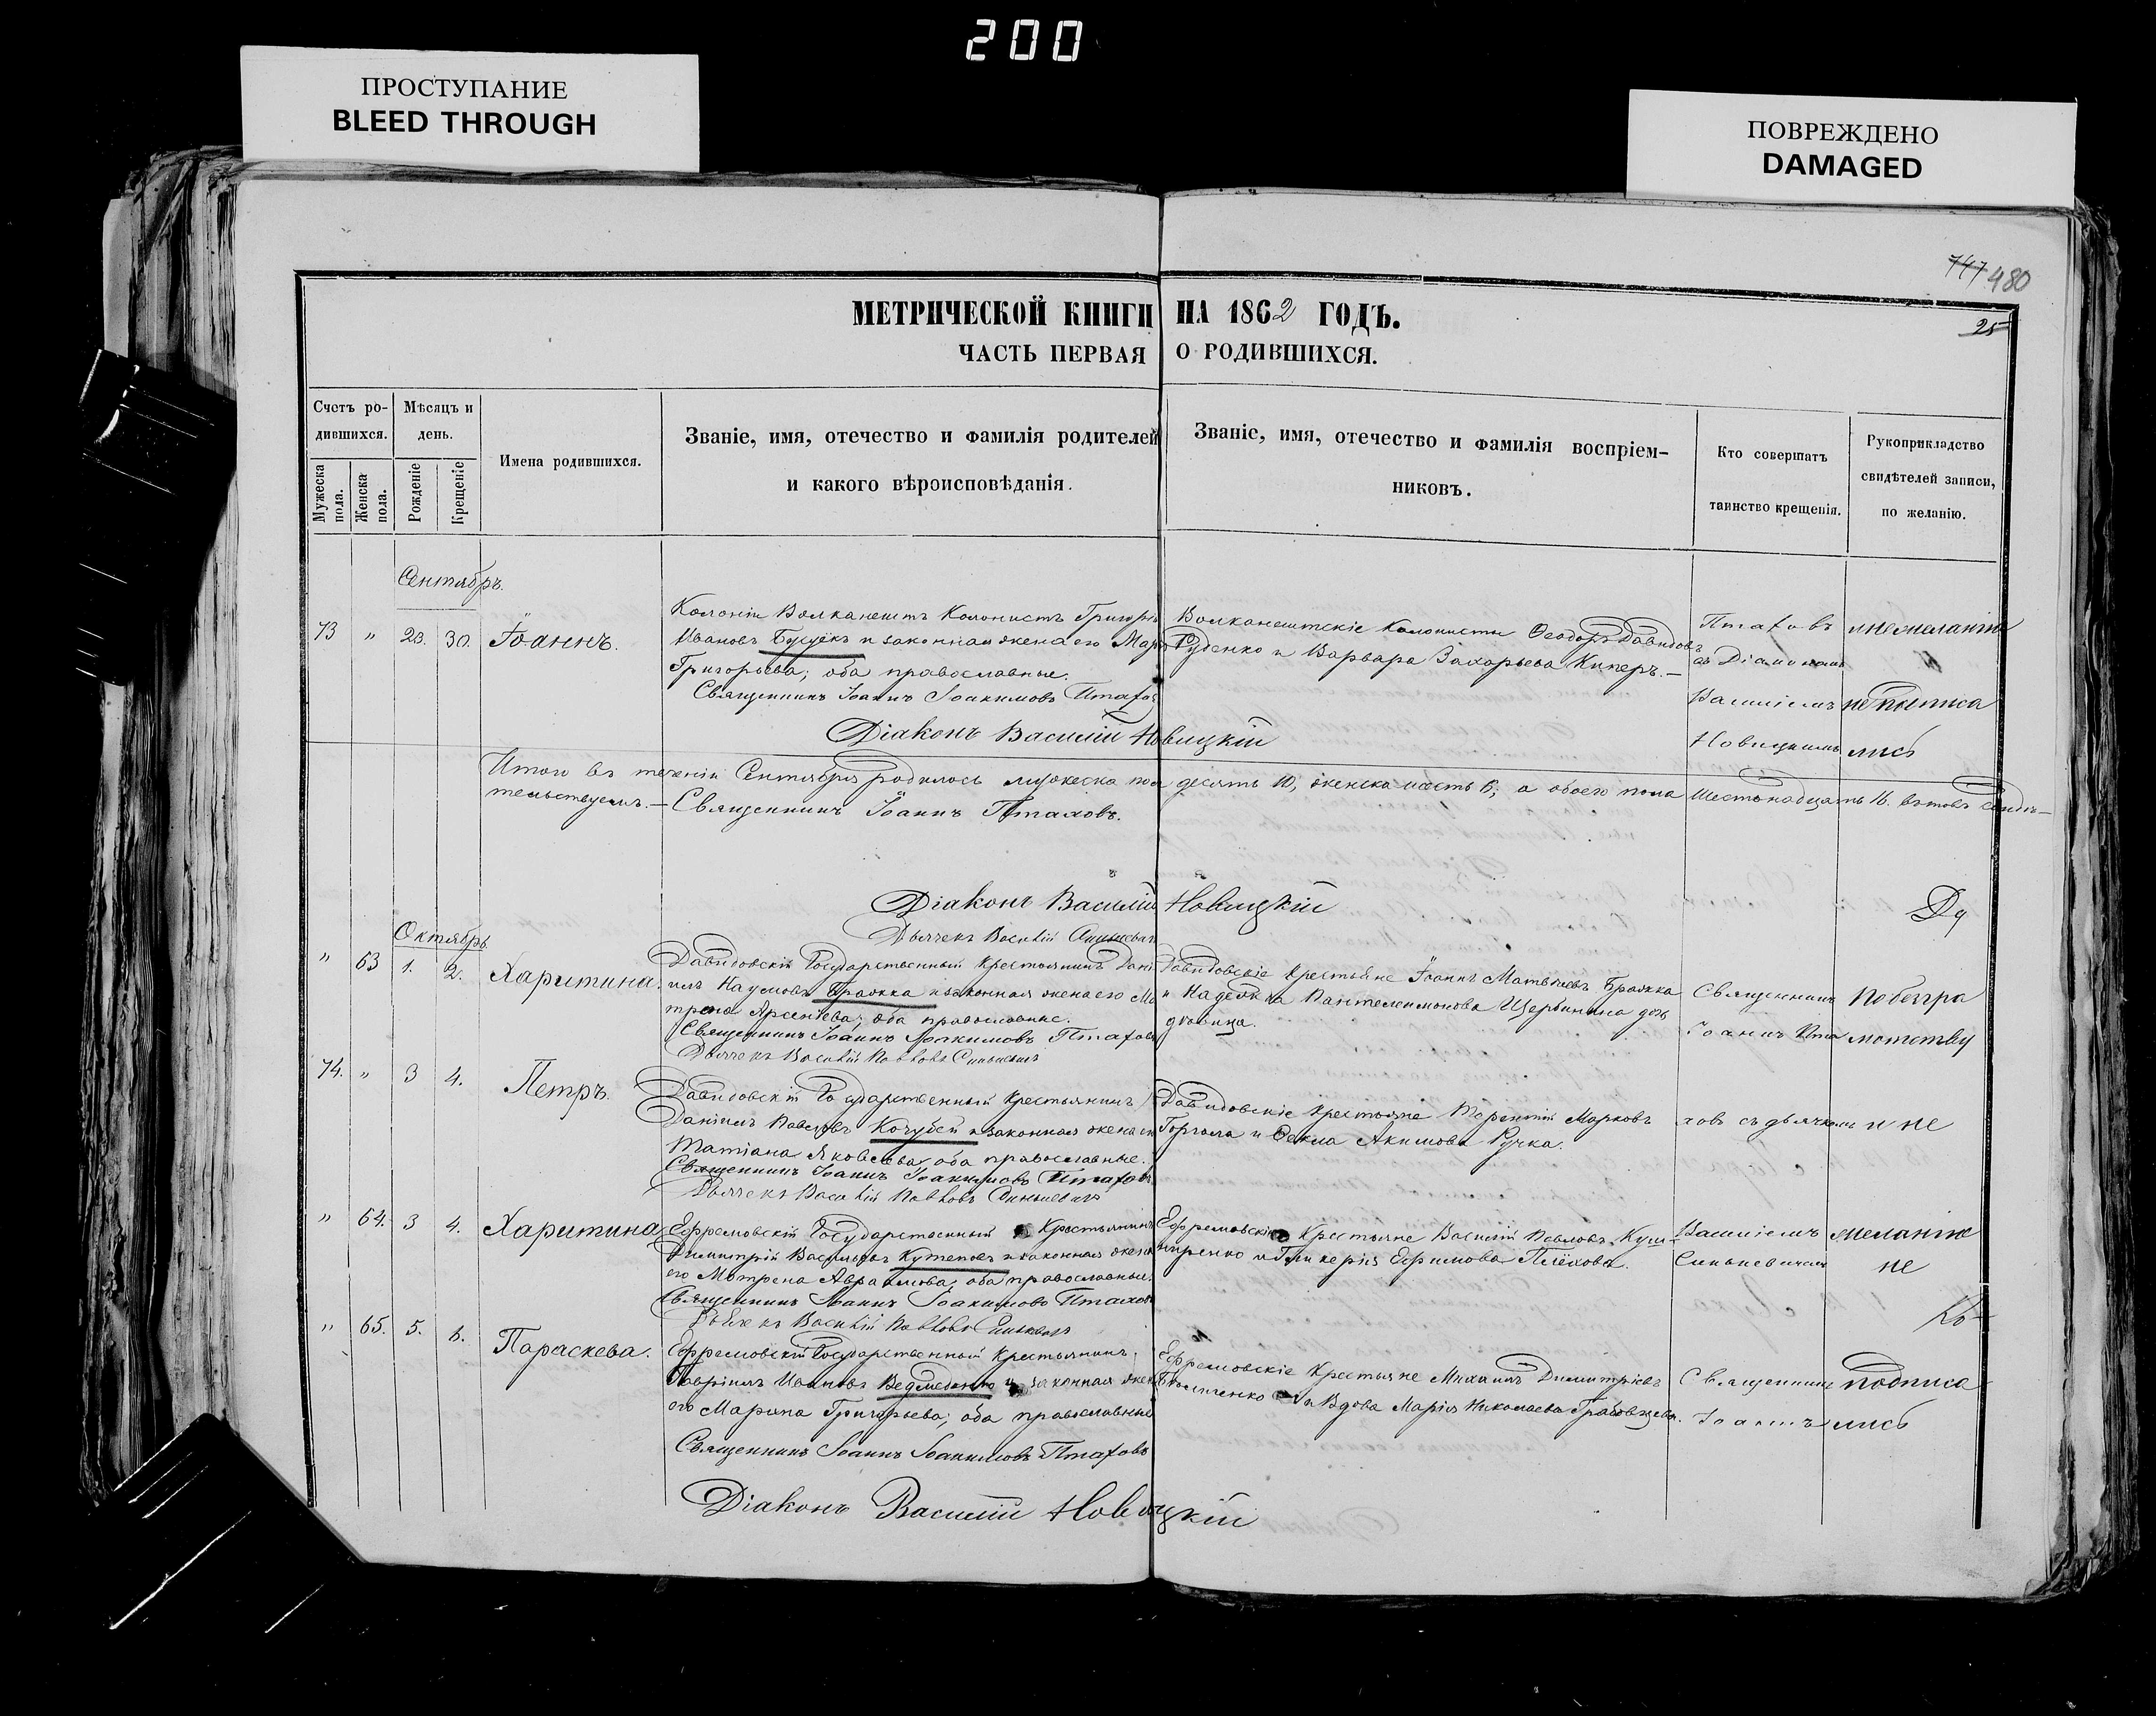 200
ПРОСТУПАНИЕ
BLEED THROUGH
ПОВРЕЖДЕНО
DAMAGED
747 480
25
МЕТРИЧЕСКОЙ КНИГИ НА 1862 ГОДЪ.
ЧАСТЬ ПЕРВАЯ О РОДИВШИХСЯ.
Счетъ ро-
дившихся.
Мужеска пола.
Женска пола.
Мѣсяцъ и
день.
Рожденіе
Крещеніе
Имена родившихся.
Званіе, имя, отечество и фамилія родителей
и какого вѣроисповѣданія.
Званіе, имя, отечество и фамилія воспріем-
никовъ.
Кто совершатъ
таинство крещенія.
Рукоприкладство
свидѣтелей записи,
по желанію.
Сентябрь.
73 " 28. 30. Іоаннъ.
Колоніи Волканештъ Колонистъ Григорій
Ивановъ и законная жена его
Григорьева; оба православные.
Священникъ Іоаннъ Іоакимовъ Птаховъ
Волканештскіе Колонисты Ѳеодоръ Давидовъ
Руденко и Варвара Захарьева Киперъ.—
Птаховъ
съ Діакономъ
Василіемъ
Новицкимъ
не подписа
лись
Діаконъ Василій Новицкій
Итого въ теченіи Сентября родилось мужеска пола десять 10, женска шесть 6; а обоего пола шестьнадцать 16. въ томъ свидѣ—
тельствуемъ.— Священникъ Іоаннъ Птаховъ.
Діаконъ Василій Новицкій
Дьячекъ Василій
Октябрь.
" 63 1. 2. Харитина.
Давидовскій Государственный Крестьянинъ Дані
илъ Наумовъ Бражка и законная жена его Ма
трона Арсеніева; оба православные.
Священникъ Іоаннъ Іоакимовъ Птаховъ
Дьячекъ Василій Павловъ Синькевичъ
Давидовскіе Крестьяне Іоаннъ Матвѣевъ Бражка
и Надежда Пантелеимонова Щербинина дочь
дѣвица.
Священникъ
Іоаннъ Пта
По безгра
мотству
74. " 3 4. Петръ.
Давидовскій Государственный Крестьянинъ
Даніилъ Павловъ Кочубей и законная жена его
Татіана Яковлева, оба православные.
Священникъ Іоаннъ Іоакимовъ Птаховъ
Дьячекъ Василій Павловъ Синькевичъ
Давидовскіе Крестьяне Терентій Марковъ
Горгола и Ѳекла Акимова Ручка.
ховъ съ дьячкомъ
и не
" 64. 3 4. Харитина
Ефремовскій Государственный Крестьянинъ
Димитрій Васильевъ Кутеповъ и законная жена
его Матрона Авраамова, оба православные.
Священникъ Іоаннъ Іоакимовъ Птаховъ
Дьячекъ Василій Павловъ Синькевичъ
Ефремовскіе Крестьяне Василій Павловъ Куш-
ниренко и Гликерія Ефимова Плѣхова.
Василіемъ
Синькевичемъ
желанію
не
" 65. 5. 6. Параскева.
Ефремовскій Государственный Крестьянинъ
Гавріилъ Ивановъ Ведмеденко и законная жена
его Марина Григорьева; оба православные
Священникъ Іоаннъ Іоакимовъ Птаховъ
Ефремовскіе Крестьяне Михаилъ Димитріевъ
и Вдова Марія Николаева
Священникъ
Іоаннъ
подписа
лись
Діаконъ Василій Новицкій